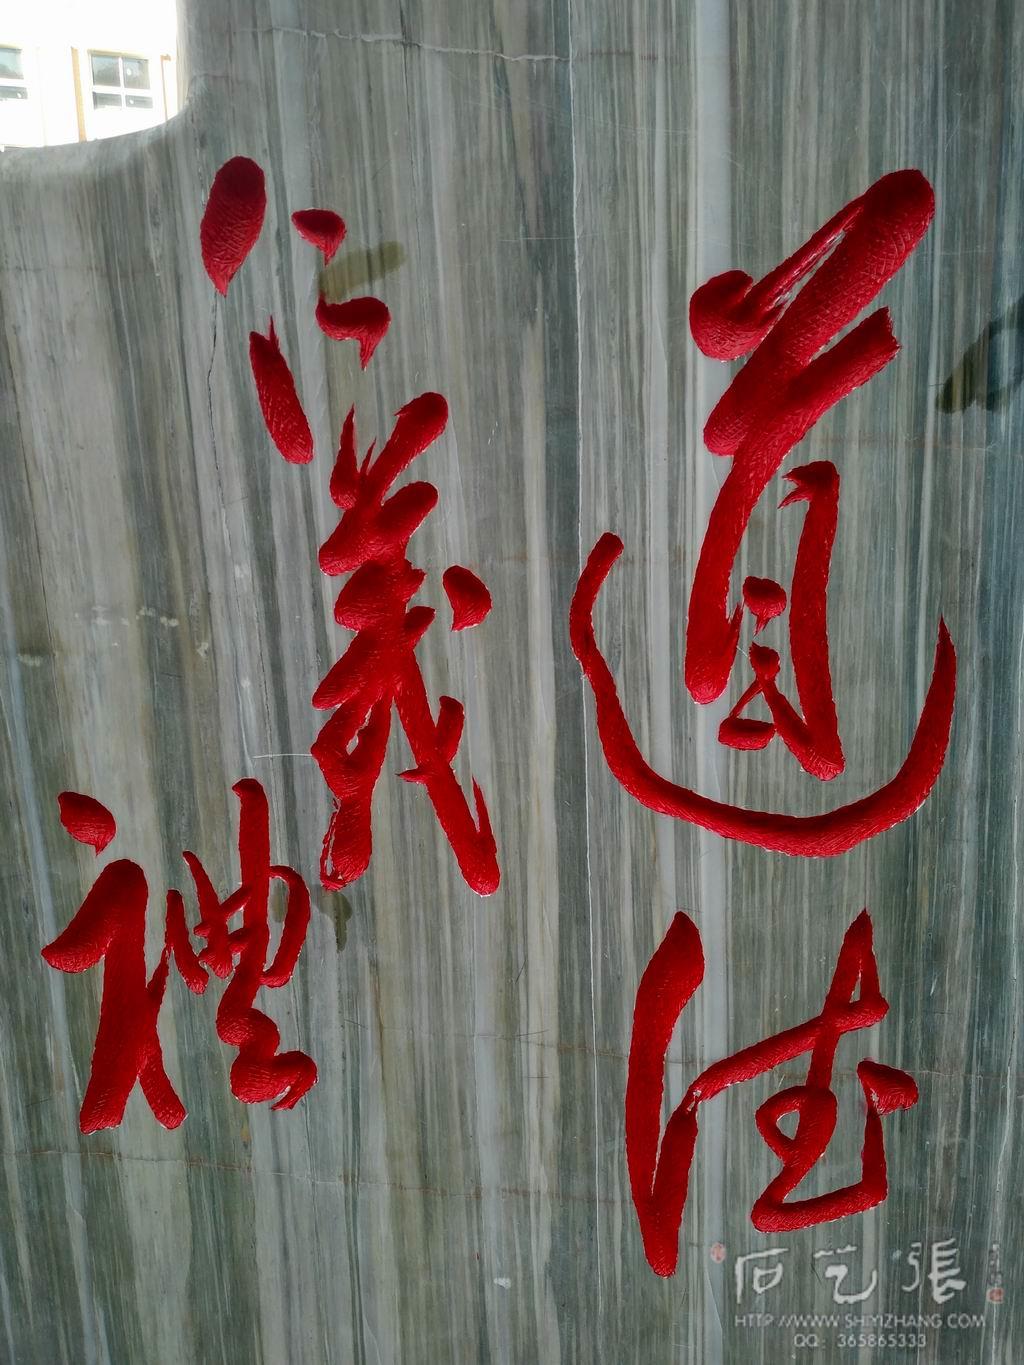 道德
仁義
禮
石艺張
HTTP://WWW.SHIYIZHANG.COM
QQ：365865333